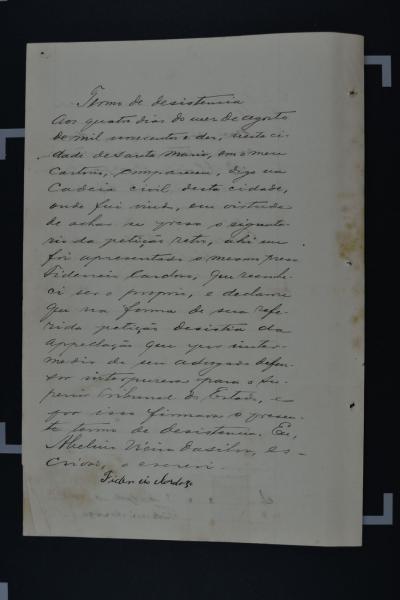 Termo de desistencia
Aos quatro dias do mez de Agosto
de mil novecentos e dez, nesta ci-
dade de Santa Maria, em o meu
Cartorio, compareceu, digo na
Cadeia civil desta cidade,
onde fui vindo, em virtude
de achar se preso o signata-
rio da petição retro, ahi me
foi apresentado o mesmo preso
Fidencio Cardoso, que reconhe-
ci ser o proprio, e declarou
que na forma de sua refe-
rida petição desistia da
appellação que por inter-
medio de seu advogado defen-
sor interpuzera para o Su-
perior Tribunal do Estado, e
por isso firmava o presen-
te termo de desistencia. Eu,
Abelino Vieira da Silva, es-
crivão, o escrevi.
Fidencio Cardozo